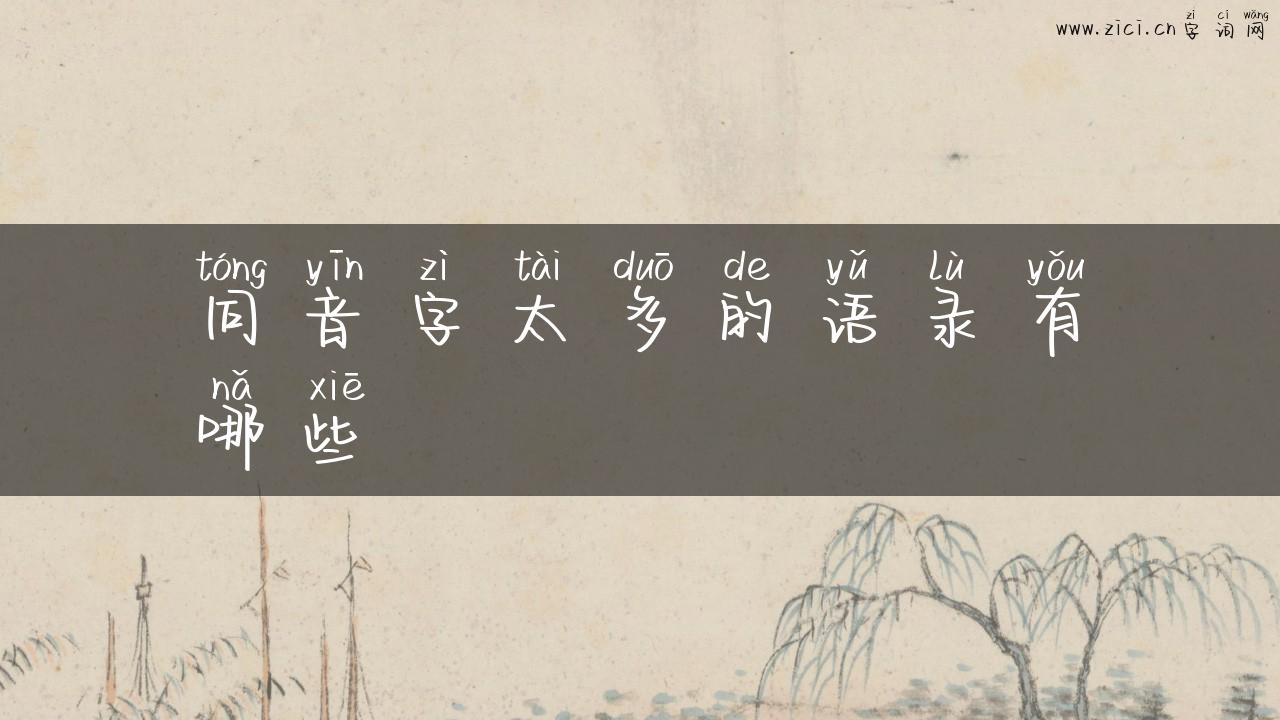 zì cí wǎng
www.zici.cn 字 词 网
tóng yīn zì tài duō de yǔ lù yǒu
同 音 字 太 多 的 语 录 有
nǎ xiē
哪 些